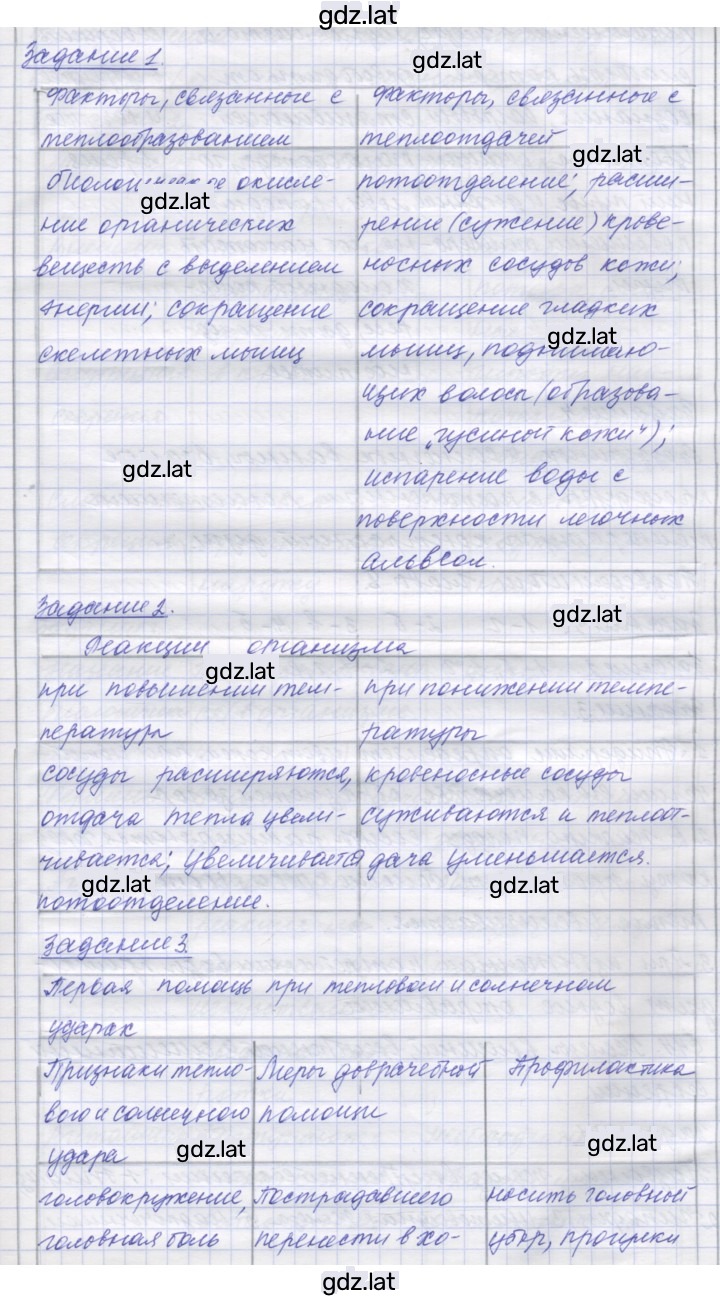 gdz.lat
Задание 1.
gdz.lat
Факторы, связанные с
теплообразованием
Факторы, связанные с
теплоотдачей
gdz.lat
окисле-
gdz.lat
ние органических
веществ с выделением
энергии; сокращение
скелетных мышц
потоотделение; расши-
рение (сужение) крове-
носных сосудов кожи;
сокращение гладких
gdz.lat
мышц, поднимаю-
щих волосы (образова-
ние „гусиной кожи“);
испарение воды с
поверхности легочных
альвеол.
gdz.lat
Задание 2.
gdz.lat
Реакции организма
gdz.lat
при повышении тем-
пературы
при понижении темпе-
ратуры
сосуды расширяются,
отдача тепла увели-
чивается; увеличивается
потоотделение.
gdz.lat
кровеносные сосуды
суживаются и теплоот-
дача уменьшается.
gdz.lat
Задание 3.
Первая помощь при тепловом и солнечном
ударах
Признаки тепло-
вого и солнечного
удара
gdz.lat
Меры доврачебной
помощи
Профилактика
gdz.lat
головокружение,
головная боль
Пострадавшего
перенести в хо-
носить головной
убор, прогулки
gdz.lat